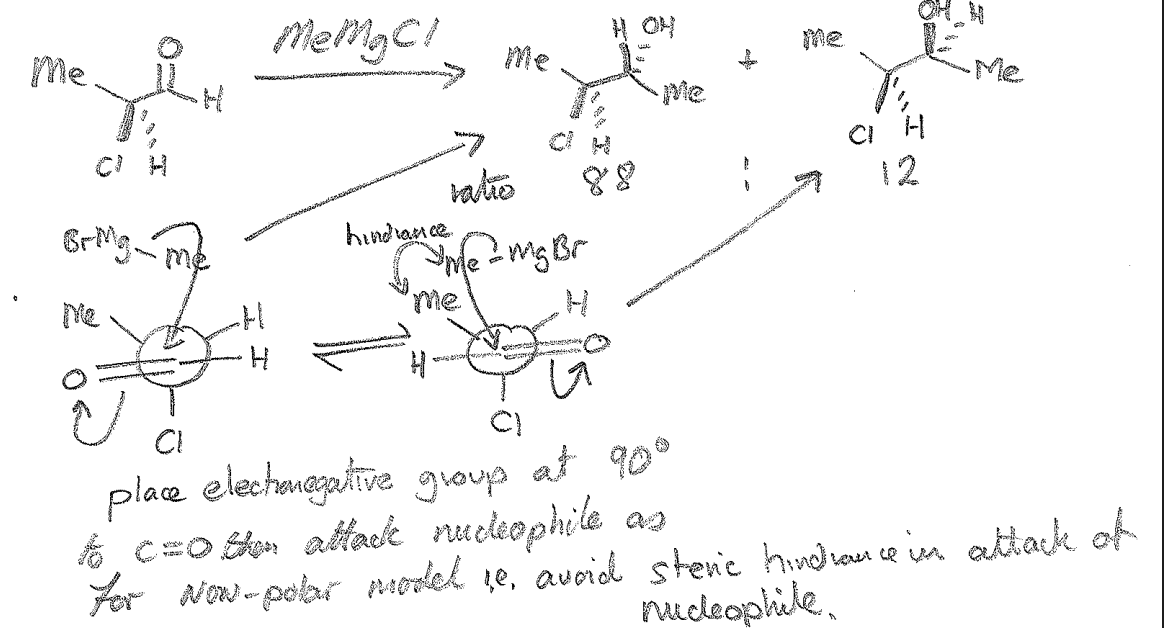 O
MeMgCl
OH H
H OH
Me
Me
Me
+
H
Me
Me
Cl H
Cl H
Cl H
88
:
12
ratio
BrMg - Me
hindrance
Me - MgBr
Me
H
H
O
Cl
Me
H
H
O
Cl
place electronegative group at 90°
to C=O then attack nucleophile as
for Non-polar model i.e. avoid steric hindrance in attack of
nucleophile.